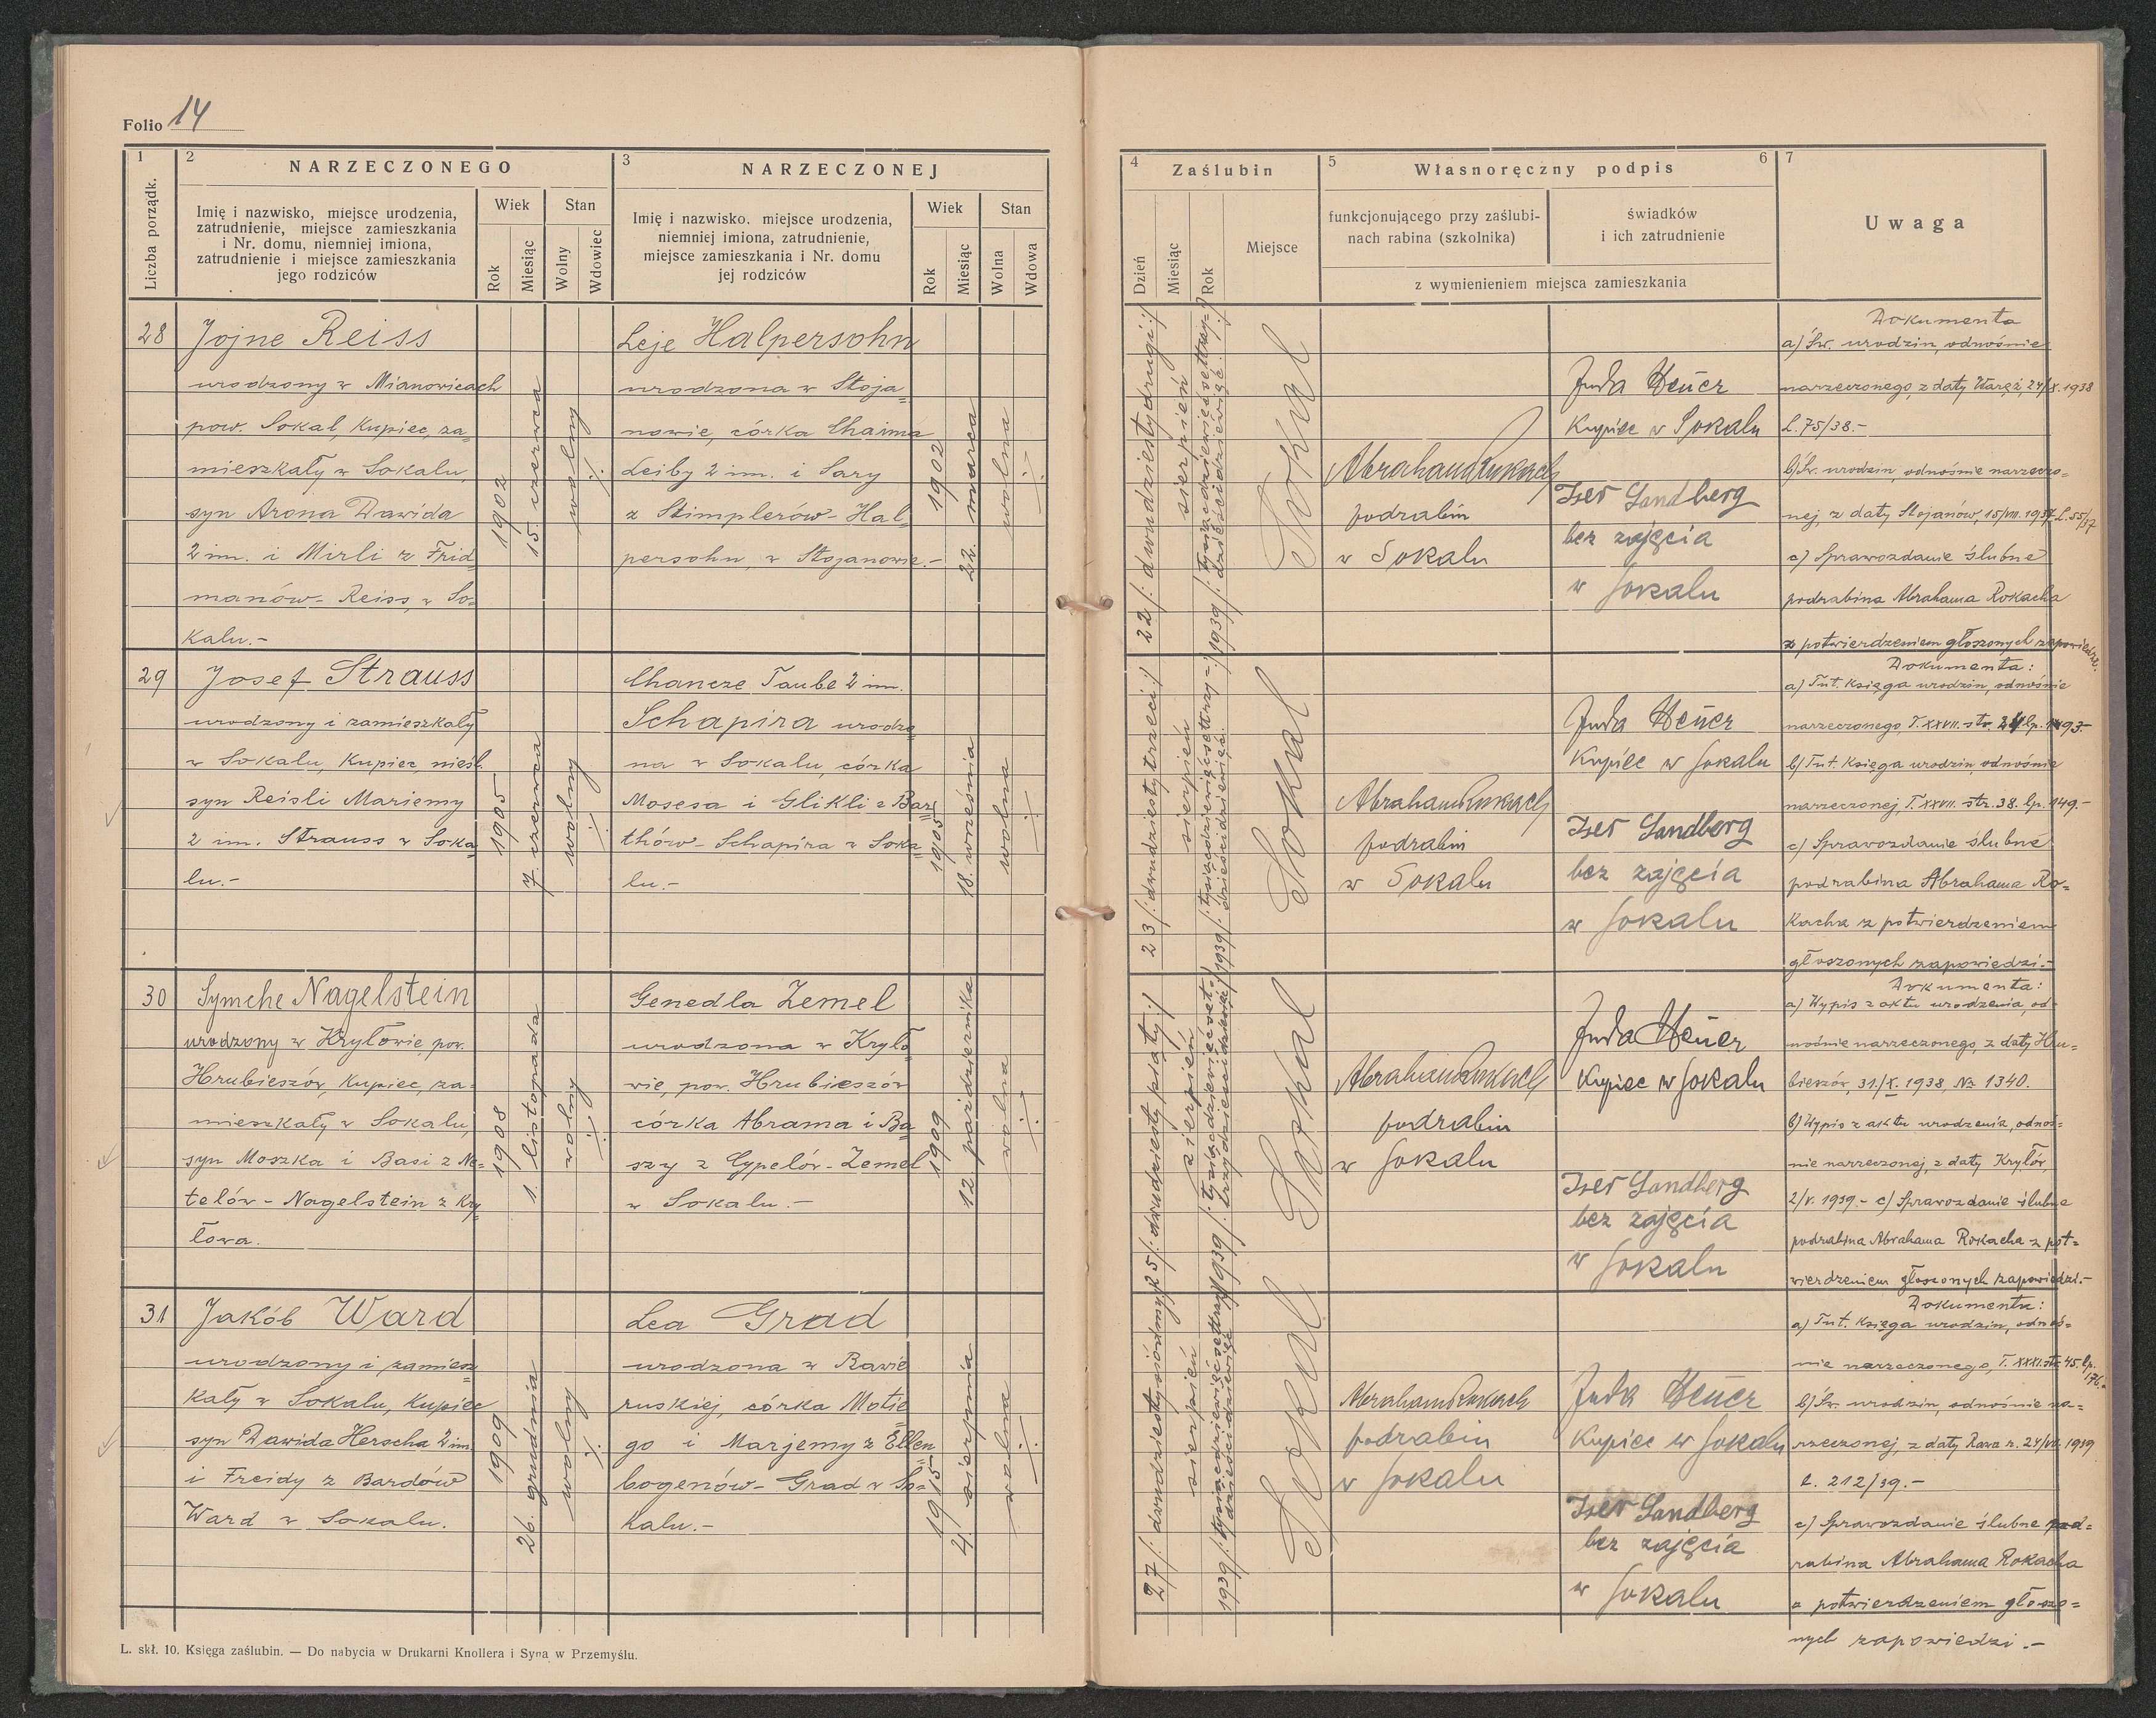 Folio 14
1
2
NARZECZONEGO
3
NARZECZONEJ
Liczba porządk.
Imię i nazwisko, miejsce urodzenia,
zatrudnienie, miejsce zamieszkania
i Nr. domu, niemniej imiona,
zatrudnienie i miejsce zamieszkania
jego rodziców
Wiek
Stan
Rok
Miesiąc
Wolny
Wdowiec
Imię i nazwisko. miejsce urodzenia,
niemniej imiona, zatrudnienie,
miejsce zamieszkania i Nr. domu
jej rodziców
Wiek
Stan
Rok
Miesiąc
Wolna
Wdowa
28
Jojne Reiss
urodzony w Mianowicach
pow. Sokal, Kupiec, za=
mieszkały w Sokalu,
syn Arona Dawida
2 im. i Mirli z Frid=
manów- Reiss, w So=
kalu.-
1902
15. czerwca
wolny
Leje Halpersohn
urodzona w Stoja=
nowie, córka Chaima
Leiby 2 im. i Sary
z Stimplerów- Hal=
persohn, w Stojanowie.-
1902
22. marca
wolna
29
Josef Strauss
urodzony i zamieszkały
w Sokalu, Kupiec, nieśl.
syn Reisli Mariemy
2 im. Strauss w Soka=
lu.-
1905
7. czerwca
wolny
Chancze Taube 2 im.
Schapira urodzo=
na w Sokalu, córka
Mosesa i Glikli z Bar=
thów- Schapira w Soka=
lu.-
1905
18. września
wolna
30
Symche Nagelstein
urodzony w Kryłowie, pow.
Hrubieszów, Kupiec, za=
mieszkały w Sokalu,
syn Moszka i Basi z Ne=
telów- Nagelstein z Kry=
łowa.
1908
1. listopada
wolny
Genedla Zemel
urodzona w Kryło=
wie, pow. Hrubieszów
córka Abrama i Ba=
szy z Cypelów- Zemel
w Sokalu.-
1909
12 października
wolna
31
Jakób Ward
urodzony i zamiesz=
kały w Sokalu, Kupiec
syn Dawida Herscha 2 im.
i Freidy z Bardów
Ward w Sokalu.
1909
26. grudnia
wolny
Lea Grad
urodzona w Rawie
ruskiej, córka Motie=
go i Marjemy z Ellen=
bogenów- Grad w So=
kalu.-
1915
4. sierpnia
wolna
L. skł. 10. Księga zaślubin. — Do nabycia w Drukarni Knollera i Syna w Przemyślu.
4
Zaślubin
5
Własnoręczny podpis
6
7
Dzień
Miesiąc
Rok
Miejsce
funkcjonującego przy zaślubi-
nach rabina (szkolnika)
świadków
i ich zatrudnienie
z wymienieniem miejsca zamieszkania
Uwaga
22/: dwudziesty drugi:/
sierpień
1939/: tysiąc dziewięćset trzy=
dzieści dziewięć:/
Sokal
Abraham Rokach
podrabin
w Sokalu
Juda Heuer
Kupiec w Sokalu
Iser Sandberg
bez zajęcia
w Sokalu
Dokumenta
a) Św. urodzin, odnośnie
narzeczonego, z daty Waręż, 24/X. 1938
L. 75/38.-
b) Św. urodzin, odnośnie narzeczo=
nej, z daty Stojanów, 15/VIII. 1937 L. 55/37
c) Sprawozdanie ślubne
podrabina Abrahama Rokacha
z potwierdzeniem głoszonych zapowiedzi.
23/: dwudziesty trzeci:/
sierpień
1939/: tysiąc dziewięćset trzy=
dzieści dziewięć.
Sokal
Abraham Rokach
podrabin
w Sokalu
Juda Heuer
Kupiec w Sokalu
Iser Sandberg
bez zajęcia
w Sokalu
Dokumenta:
a) Tut. Księga urodzin, odnośnie
narzeczonego, T. XXVII. str.
b) Tut. Księga urodzin, odnośnie
narzeczonej, T. XXVII. str. 38. lp. 149.-
c) Sprawozdanie ślubne
podrabina Abrahama Ro=
kacha z potwierdzeniem
głoszonych zapowiedzi.-
25/: dwudziesty piąty:/
sierpień
1939/: tysiąc dziewięćset
trzydzieści dziewięć:/
Sokal
Abraham Rokach
podrabin
w Sokalu
Juda Heuer
Kupiec w Sokalu
Iser Sandberg
bez zajęcia
w Sokalu
Dokumenta:
a) Wypis z aktu urodzenia, od=
nośnie narzeczonego, z daty Hru=
bieszów, 31./X. 1938, Nr 1340.
b) Wypis z aktu urodzenia, odnoś=
nie narzeczonej, z daty Kryłów,
2/V. 1939.- c) Sprawozdanie ślubne
podrabina Abrahama Rokacha z pot=
wierdzeniem głoszonych zapowiedzi.-
27/: dwudziesty siódmy:/
sierpień
1939/: tysiąc dziewięćset trzy=
dzieści dziewięć
Sokal
Abraham Rokach
podrabin
w Sokalu
Juda Heuer
Kupiec w Sokalu
Iser Sandberg
bez zajęcia
w Sokalu
Dokumenta:
a) Tut. Księga urodzin, odnoś=
nie narzeczonego, T. XXXI. str. 45. lp. 176.-
b) Św. urodzin, odnośnie na=
rzeczonej, z daty Rawa r. 24/VII. 1939
L. 212/39.-
c) Sprawozdanie ślubne pod=
rabina Abrahama Rokacha
z potwierdzeniem głoszo=
nych zapowiedzi.-